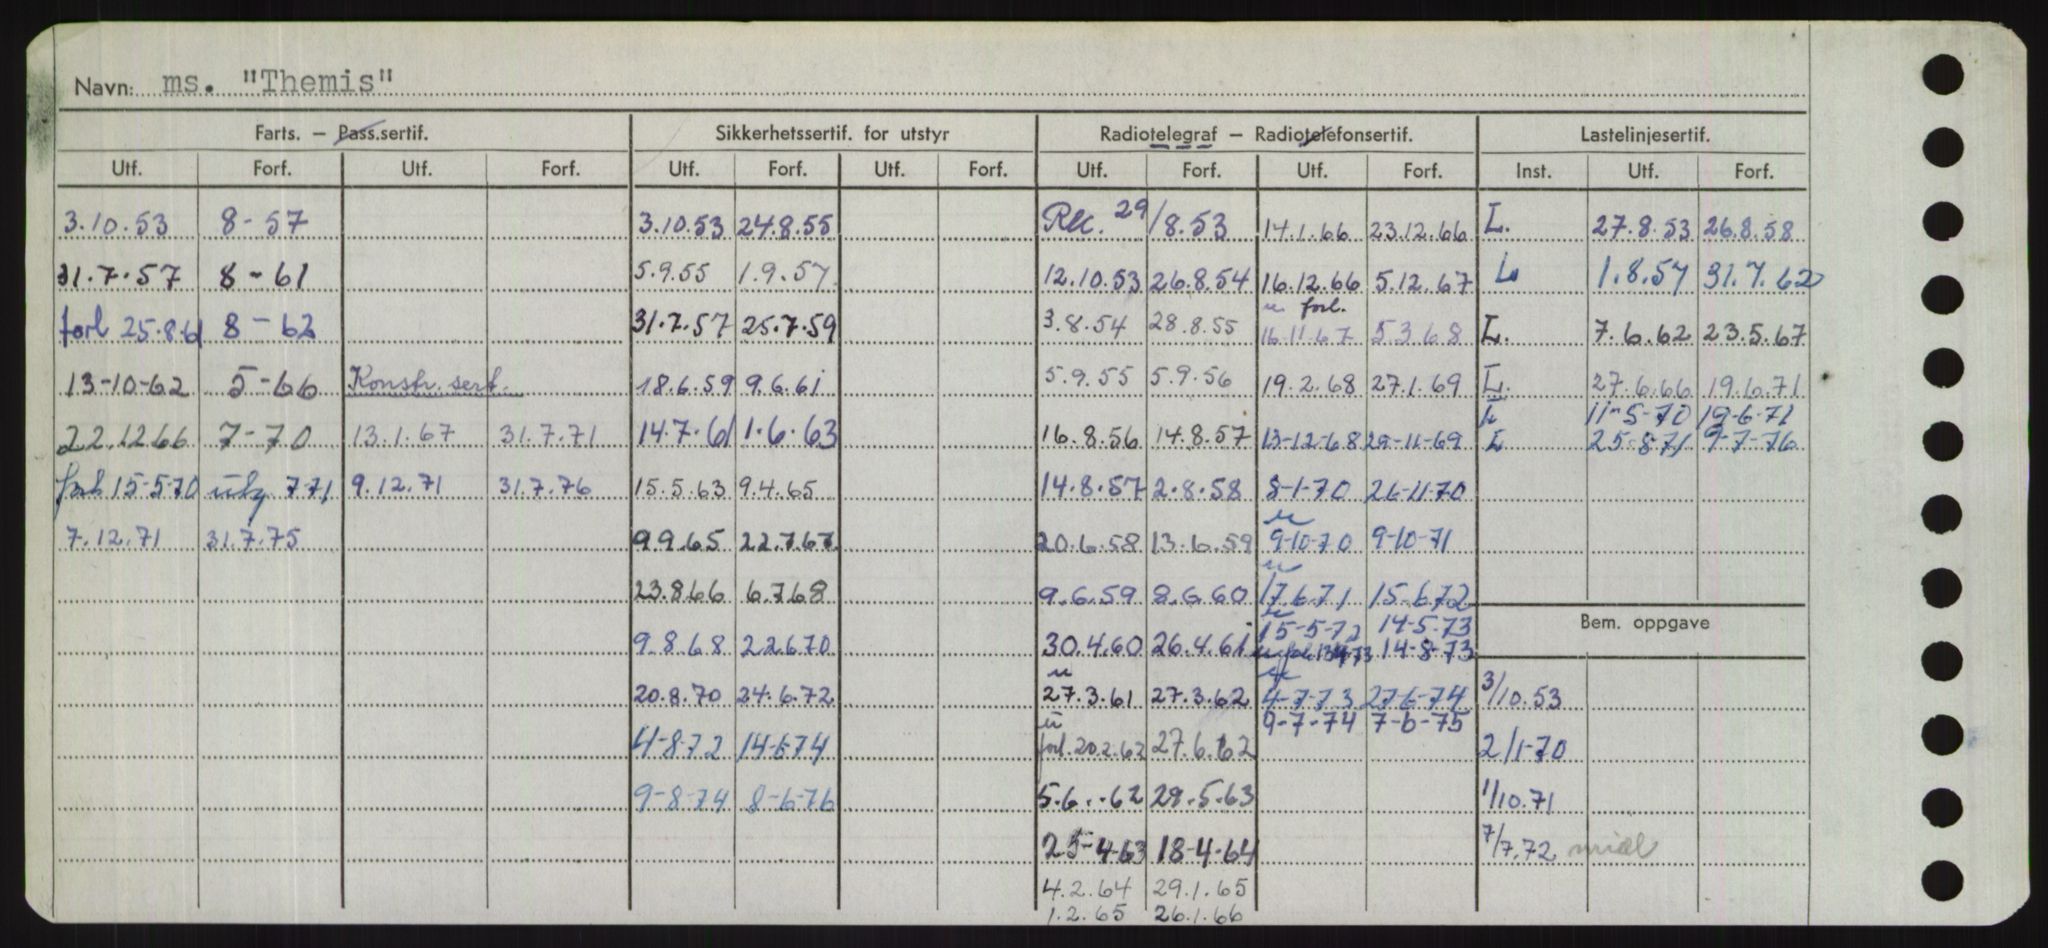 Navn: ms. "Themis"
Farts. – Pass.sertif. Sikkerhetssertif. for utstyr Radiotelegraf – Radiotelefonsertif. Lastelinjesertif.
Utf. Forf. Utf. Forf. Utf. Forf. Utf. Forf. Utf. Forf. Utf. Forf. Inst. Utf. Forf.
3.10.53 8-57 3.10.53 24.8.55 Rec. 29/8.53 14.1.66 23.12.66 L. 27.8.53 26.8.58
31.7.57 8-61 5.9.55 1.9.57 12.10.53 26.8.54 16.12.66 5.12.67 L 1.8.57 31.7.62
u forl.
forl 25.8.61 8-62 31.7.57 25.7.59 3.8.54 28.8.55 16.11.67 5.3.68 L. 7.6.62 23.5.67
13-10-62 5-66 Konstr. sert. 18.6.59 9.6.61 5.9.55 5.9.56 19.2.68 27.1.69 L. 27.6.66 19.6.71
L 11-5-70 19-6-71
22.12.66 7-70 13.1.67 31.7.71 14.7.61 1.6.63 16.8.56 14.8.57 13-12-68 29-11-69 L 25-8-71 9-7-76
forl 15-5-70 7.71 9.12.71 31.7.76 15.5.63 9.4.65 14.8.57 2.8.58 8-1-70 26-11-70
u
7.12.71 31.7.75 9.9.65 22.7.67 20.6.58 13.6.59 9-10-70 9-10-71
u
23.8.66 6.7.68 9.6.59 8.6.60 17.6.71 15.6.72
u
Bem. oppgave
15-5-72 14-5-73
9.8.68 22.6.70 30.4.60 26.4.61 14-8-73
u
20.8.70 24.6.72 27.3.61 27.3.62 4-7-73 27-6-74 3/10.53
u 9-7-74 7-6-75
4-8-72 14-6-74 forl. 20.2.62 27.6.62 2/1-70
9-8-74 8-6-76 5.6.62 29.5.63 1/10.71
25-4-63 18-4-64 7/7.72
4.2.64 29.1.65
1.2.65 26.1.66